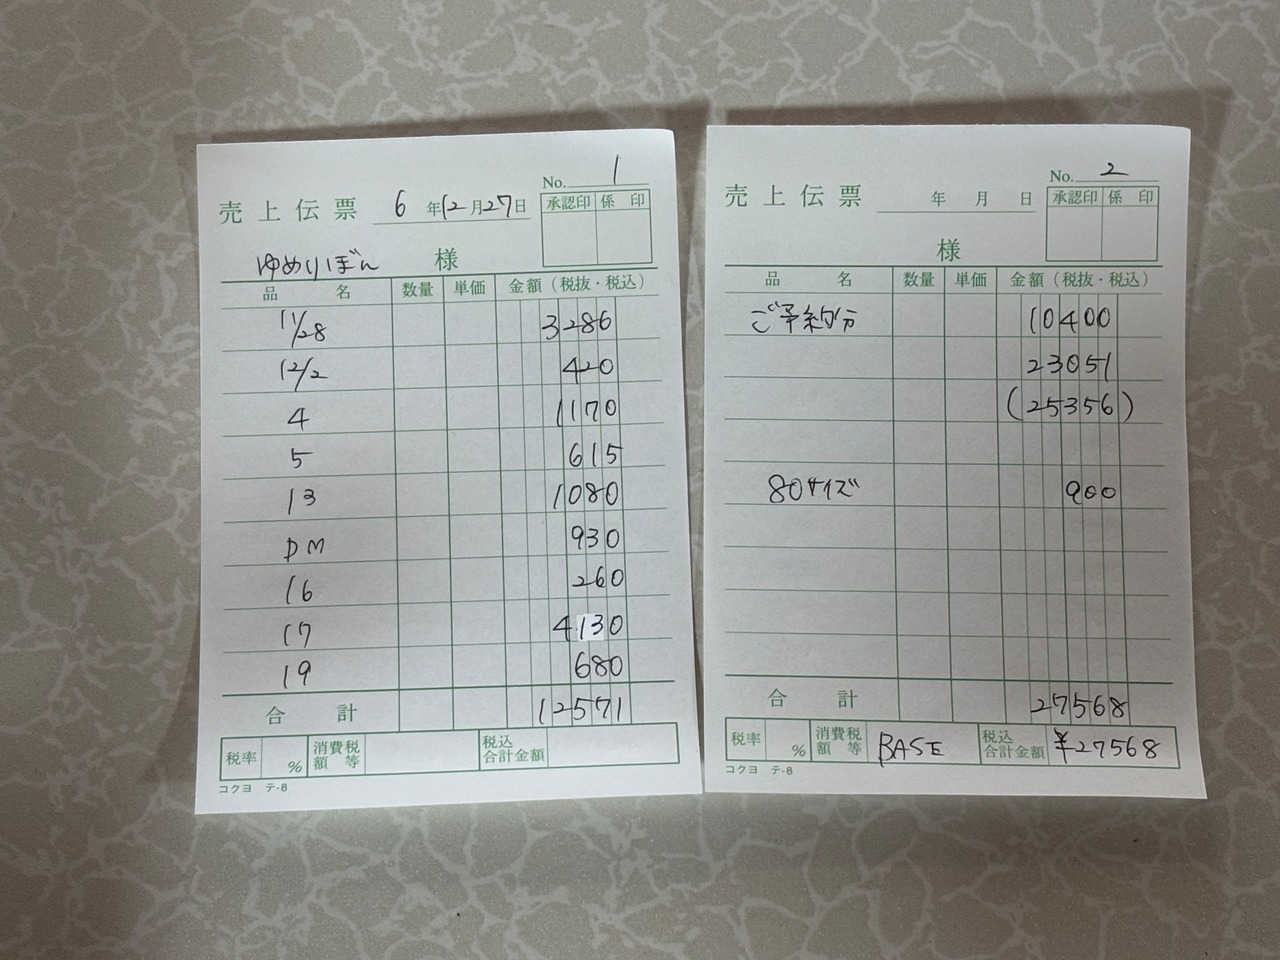 No. 1
売上伝票 6年12月27日
承認印 係印
ゆめりぼん 様
品名 数量 単価 金額（税抜・税込）
11/28 3286
12/2 420
4 1170
5 615
13 1080
DM 930
16 260
17 4130
19 680
合計 12571
税率 % 消費税額等 税込合計金額
コクヨ テ-8
No. 2
売上伝票 年 月 日
承認印 係印
様
品名 数量 単価 金額（税抜・税込）
ご予約分 10400
23051
(25356)
80サイズ 900
合計 27568
税率 % 消費税額等 BASE 税込合計金額 ¥27568
コクヨ テ-8